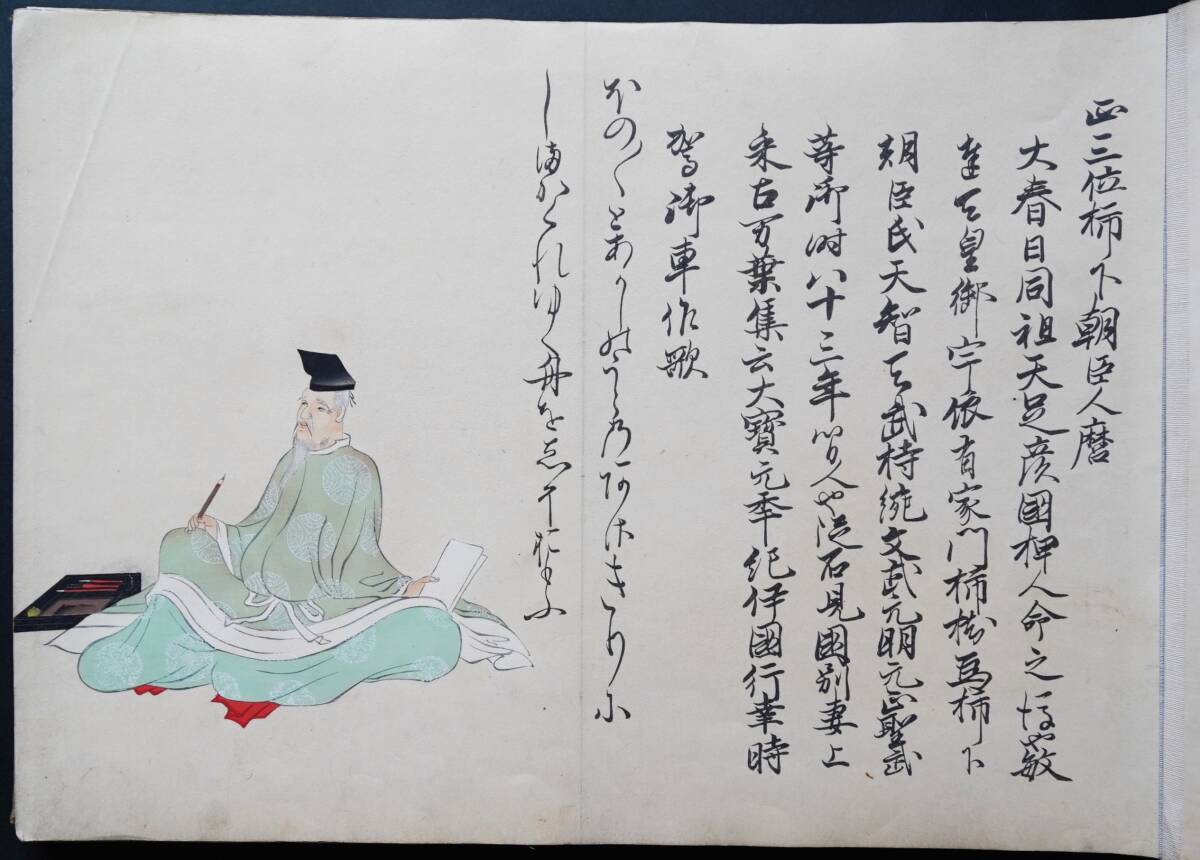 正三位柿下朝臣人麿
大春日同祖天足彦國押人命之後也敏
達天皇御宇依有家門柿樹為柿下
朝臣氏天智天武持統文武元明元正聖武
等御時八十三年間人也従石見國別妻上
来古万葉集云大寳元年紀伊國行幸時
駕御車作歌
ほの〱とあかしのうらのあさきりに
しまかくれゆく舟をし所おもふ